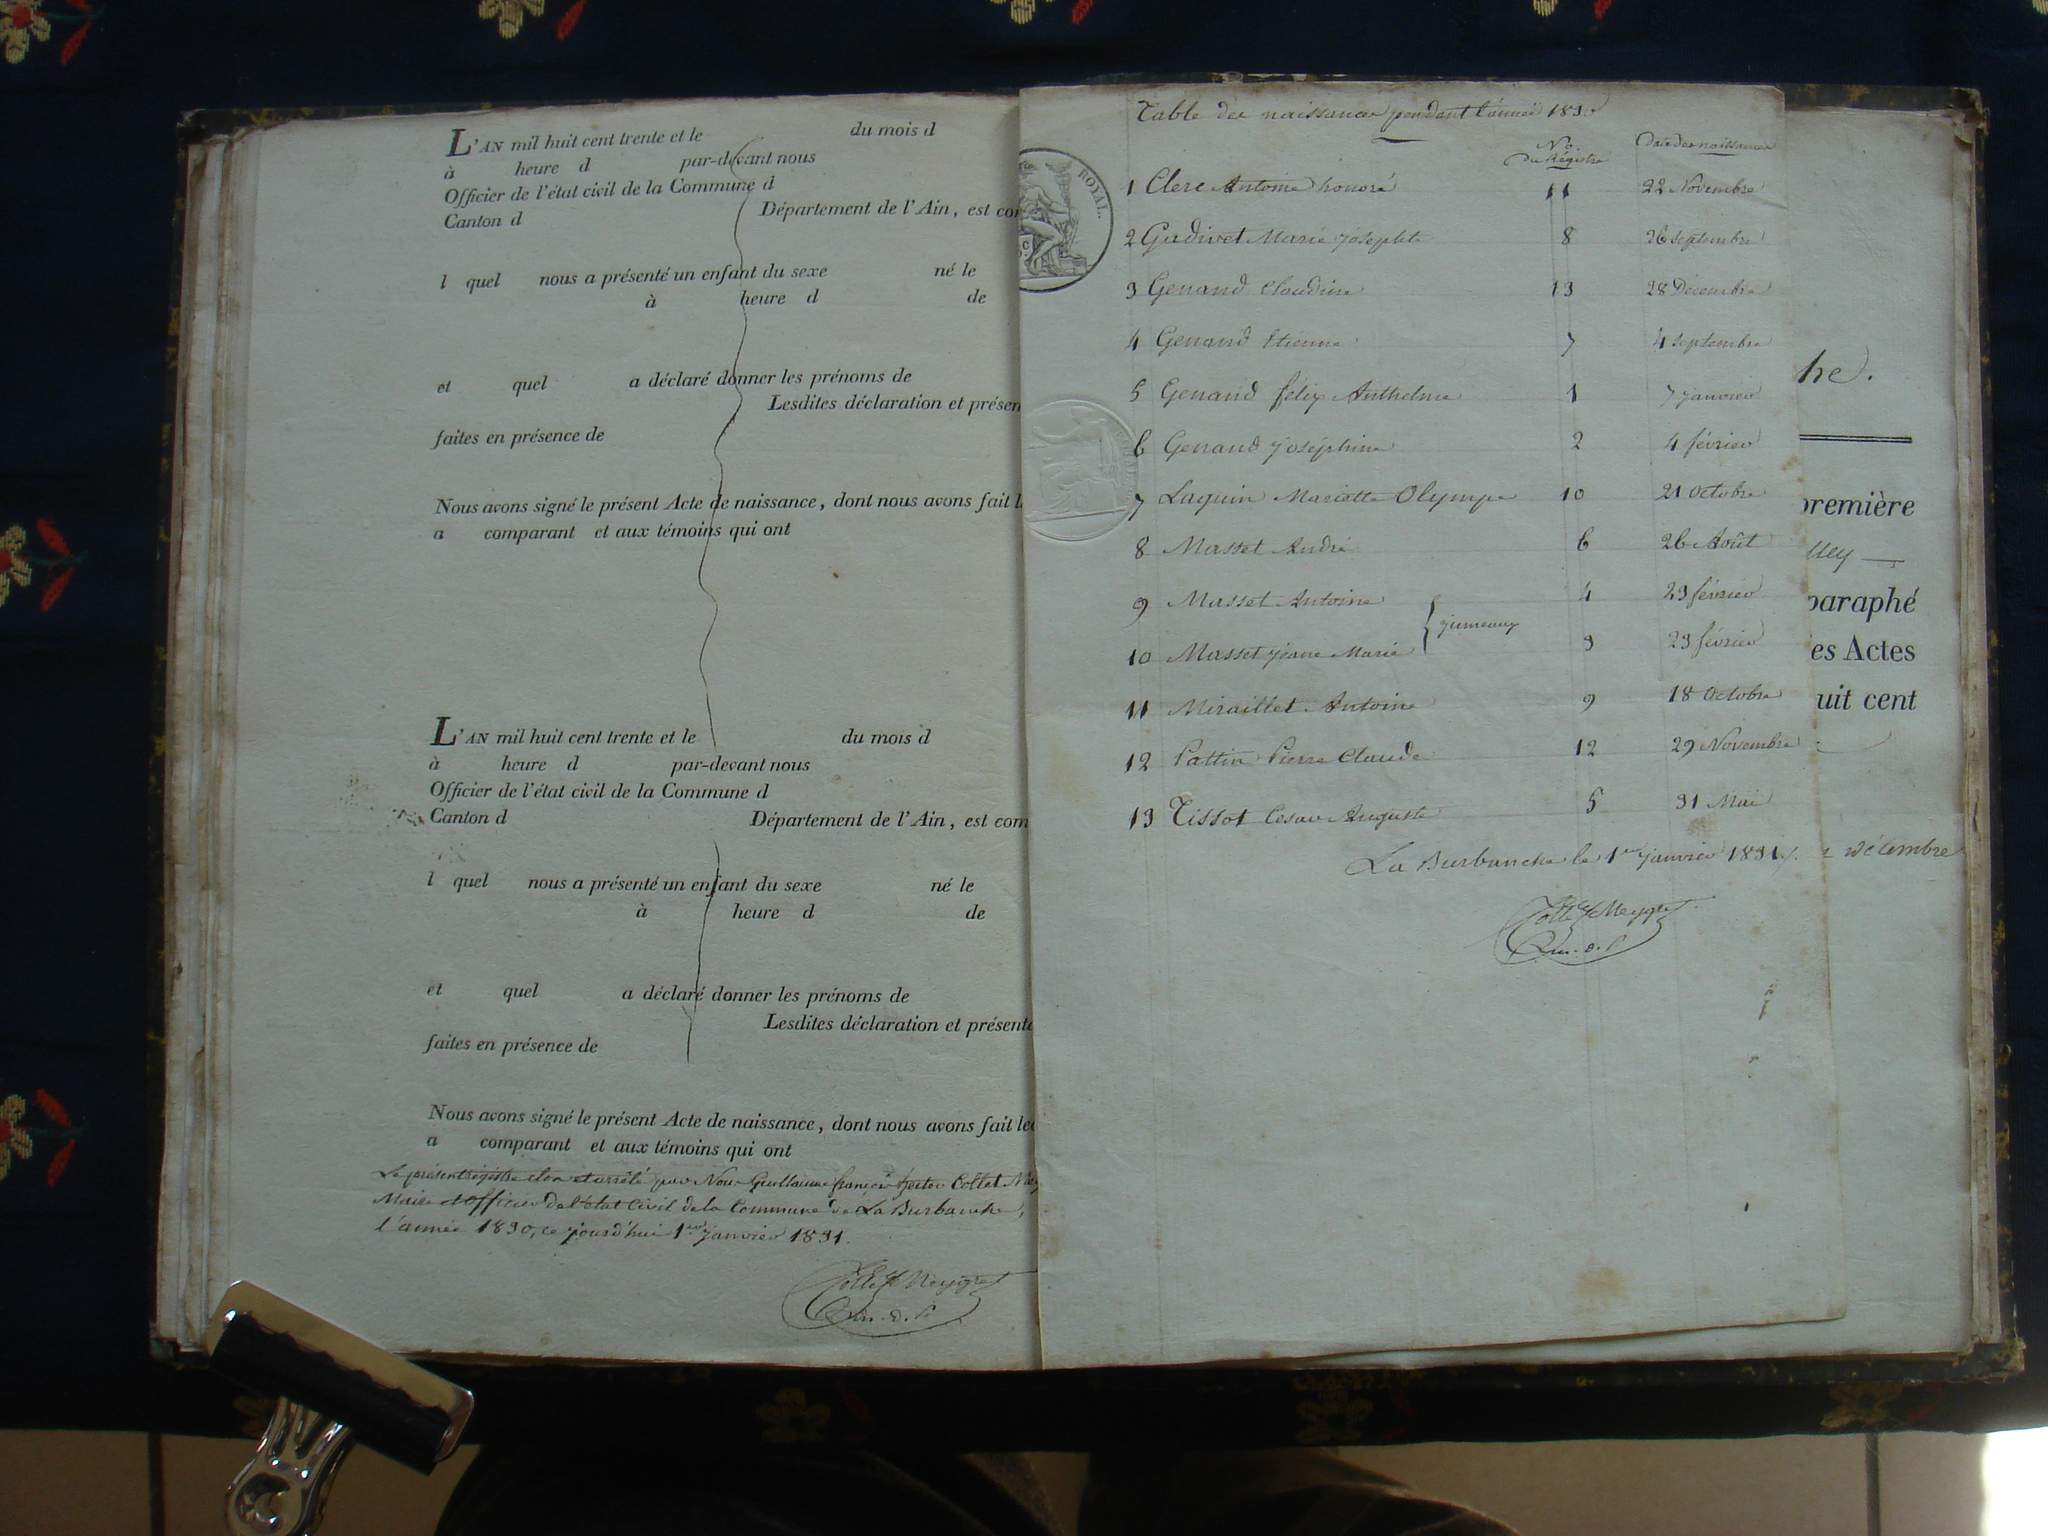 L'AN mil huit cent trente et le du mois d
à heure d par-devant nous
Officier de l'état civil de la Commune d
Canton d Département de l'Ain, est com
l quel nous a présenté un enfant du sexe né le
à heure d de
et quel a déclaré donner les prénoms de
Lesdites déclaration et présen
faites en présence de
Nous avons signé le présent Acte de naissance, dont nous avons fait l
a comparant et aux témoins qui ont
L'AN mil huit cent trente et le du mois d
à heure d par-devant nous
Officier de l'état civil de la Commune d
Canton d Département de l'Ain, est com
l quel nous a présenté un enfant du sexe né le
à heure d de
et quel a déclaré donner les prénoms de
Lesdites déclaration et présent
faites en présence de
Nous avons signé le présent Acte de naissance, dont nous avons fait lec
a comparant et aux témoins qui ont
Le présent registre clos et arrêté par Nous Guillaume françois hector Collet Mey
Maire et officier de l'état Civil de la Commune de La Burbanche,
l'année 1830, ce jourd'hui 1er janvier 1831.
Collet Meygret
Table des naissances pendant l'année 1830
No. Du Régistre Date des naissances
ROYAL.
1 Clerc Antoine honoré 11 22 Novembre
2 Gudivet Marie josephte 8 26 septembre
3 Genand Claudine 13 28 Décembre
4 Genand Etienne 7 4 septembre
5 Genand félix Anthelme 1 7 janvier
6 Genand joséphine 2 4 février
7 Laguin Mariette Olympe 10 21 Octobre
8 Masset André 6 26 Août
9 Masset Antoine 4 23 février
jumeaux
10 Masset jeane Marie 3 23 février
11 Miraillet Antoine 9 18 Octobre
12 Pattin Pierre Claude 12 29 Novembre
13 Tissot Cesar Auguste 5 31 Mai
La Burbanche le 1er janvier 1831.
Collet Meygret
he.
première
lley
paraphé
es Actes
uit cent
décembre